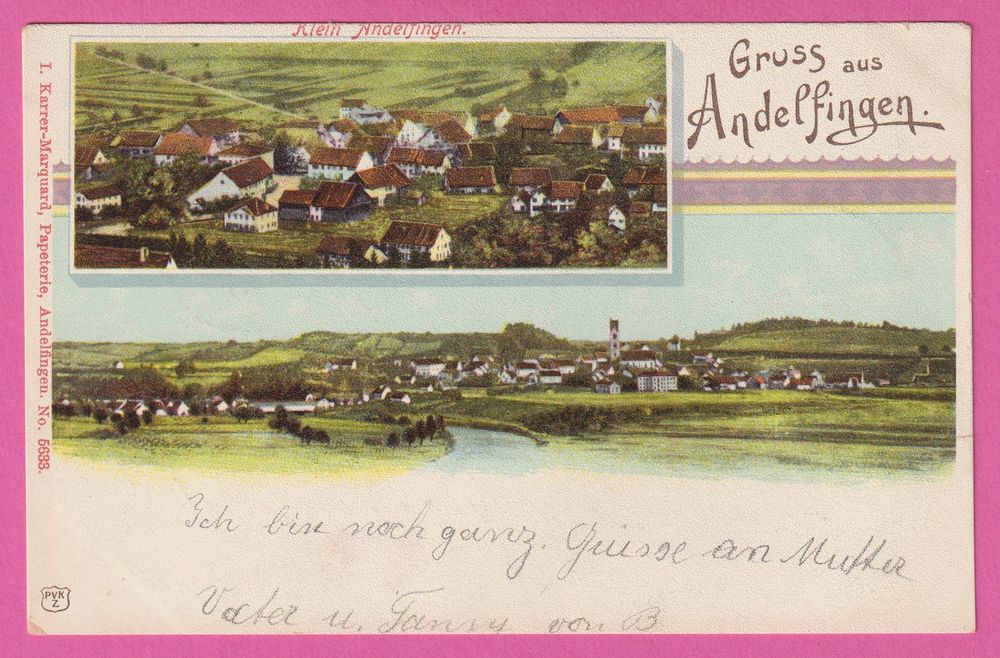 Klein Andelfingen.
Gruss aus
Andelfingen.
I. Karrer-Marquard, Papeterie, Andelfingen. No. 5633.
Ich bin noch ganz. Grüsse an Mutter
Vater u. Fanny von B
PVK
Z